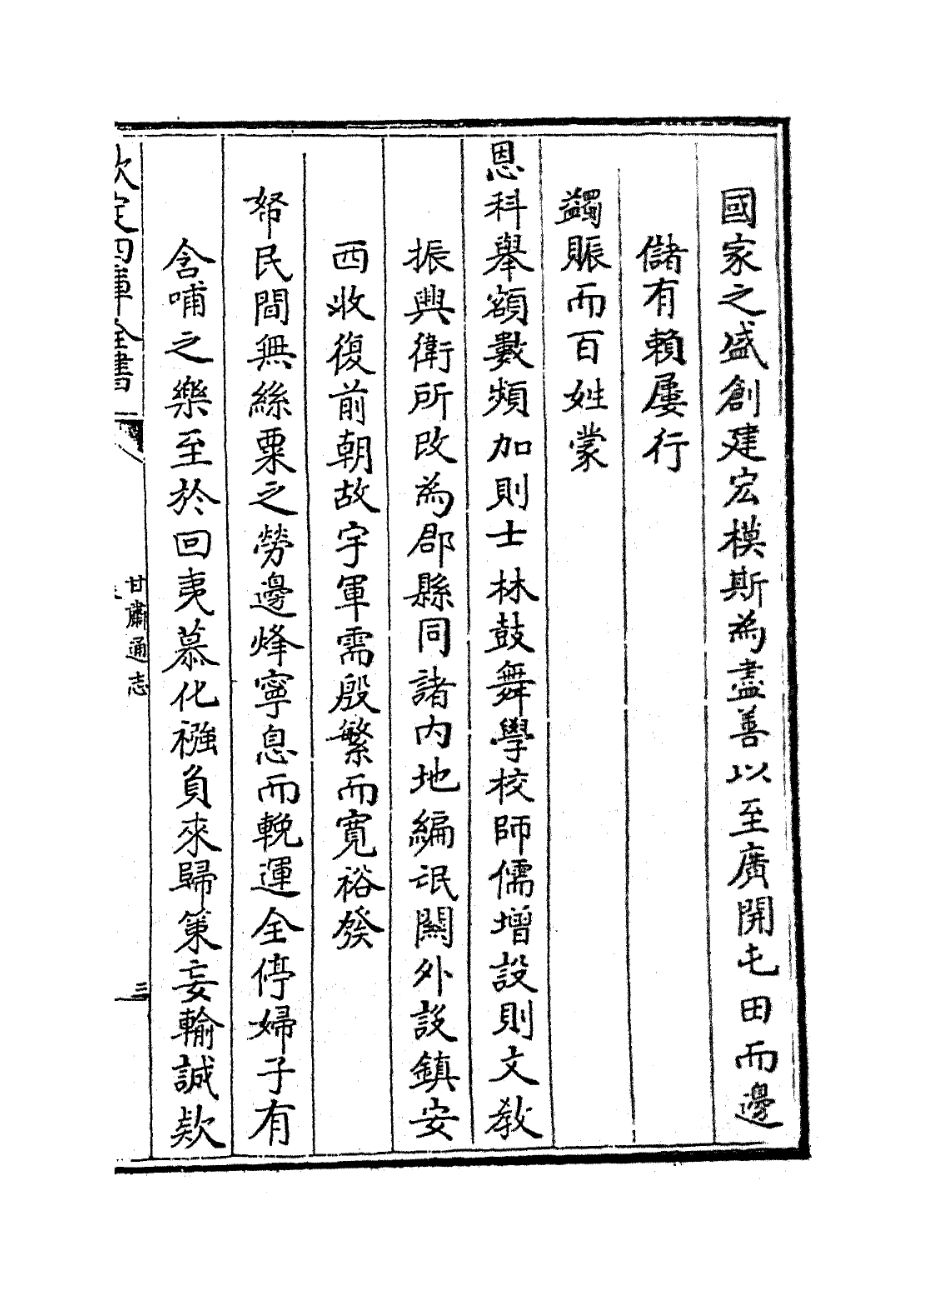 國家之盛創建宏模斯為盡善以至廣開屯田而邊
儲有賴屢行
蠲賑而百姓蒙
恩科舉額數頻加則士林鼓舞學校師儒增設則文教
振興衛所改為郡縣同諸内地編氓闗外設鎮安
西收復前朝故宇軍需殷繁而寛裕發
帑民間無絲粟之勞邊烽寧息而輓運全停婦子有
含哺之樂至於回夷慕化襁負來歸策妄輸誠欵
欽定四庫全書
甘肅通志
三